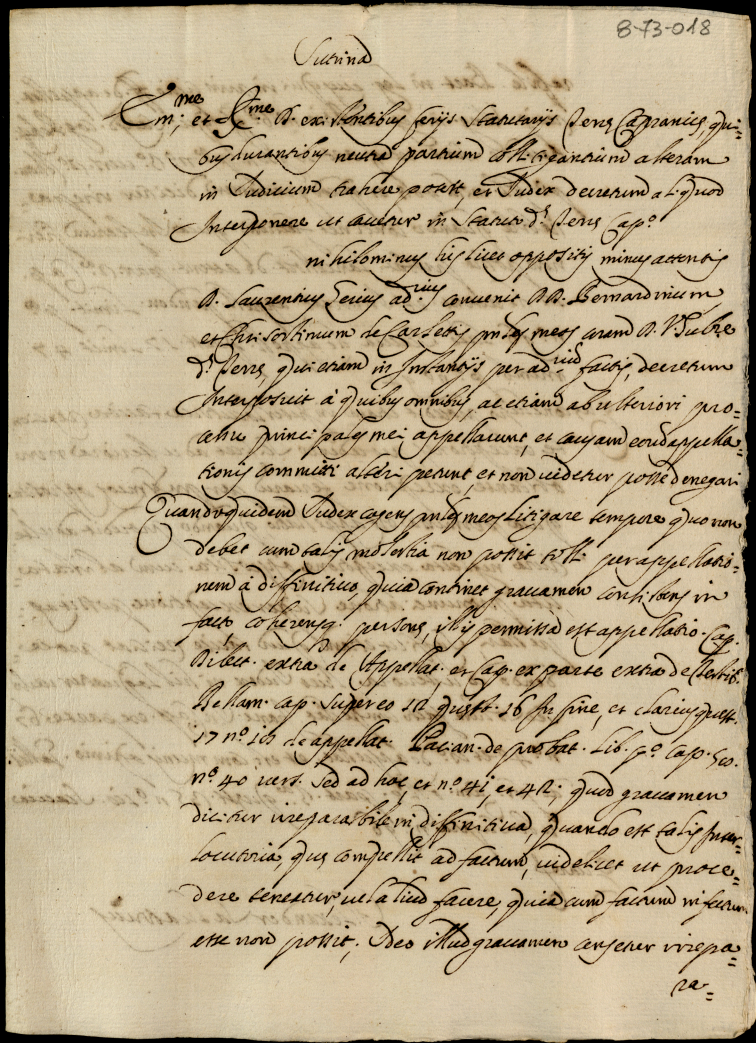 8-73-018
Sutrina
Em.me et R.me D. existentibus ferijs statutarijs Terre Capranice, qui=
bus durantibus neutra partium Coll: tigantium alteram
in Iudicium trahere potest, et Iudex decretum aliquod
Interponere ut cavetur in Statut. d.e Terre Cap.e
nihilominus his licet oppositis minus attentis
D. Laurentius ad.rius convenit DD. Bernardinum
et Chrisostimum de Carlettis pnles meos coram D. V. Iudice
d.e Terre, qui etiam in Instantijs per ad.rium factis, decretum
Interposuit à quibus omnibus, ac etiam ab ulteriori pro=
cessu principales mei appellarunt, et causam eorum appella=
tionis committi alteri petunt et non videtur posse denegari
Quandoquidem Iudex cogens pnles meos litigare tempore quo non
debet cum talis molestia non possit tolli per appellatio=
nem à diffinitiva, quia continet gravamen consistens in
facto, coherensq. persone, illis permissa est appellatio. Cap.
Dilect. extra de Appellat. et Cap. ex parte extra de Testib.
Bellam. cap. super eo 12 quest. 16 in fine, et clarius quest.
17 n.o 101 de appellat. Pacian. de probat. Lib. p.o Cap. 50.
n.o 40 vers. sed ad hoc, et n.o 41, et 42, quod gravamen
dicitur irreparabile in diffinitiva, quando est talis Inter=
locutoria, que compellit ad factum, videlicet ut proce=
dere teneatur, vel aliud facere, quia cum factum infectum
esse non possit, Ideo illud gravamen censetur irrepa=
ra=